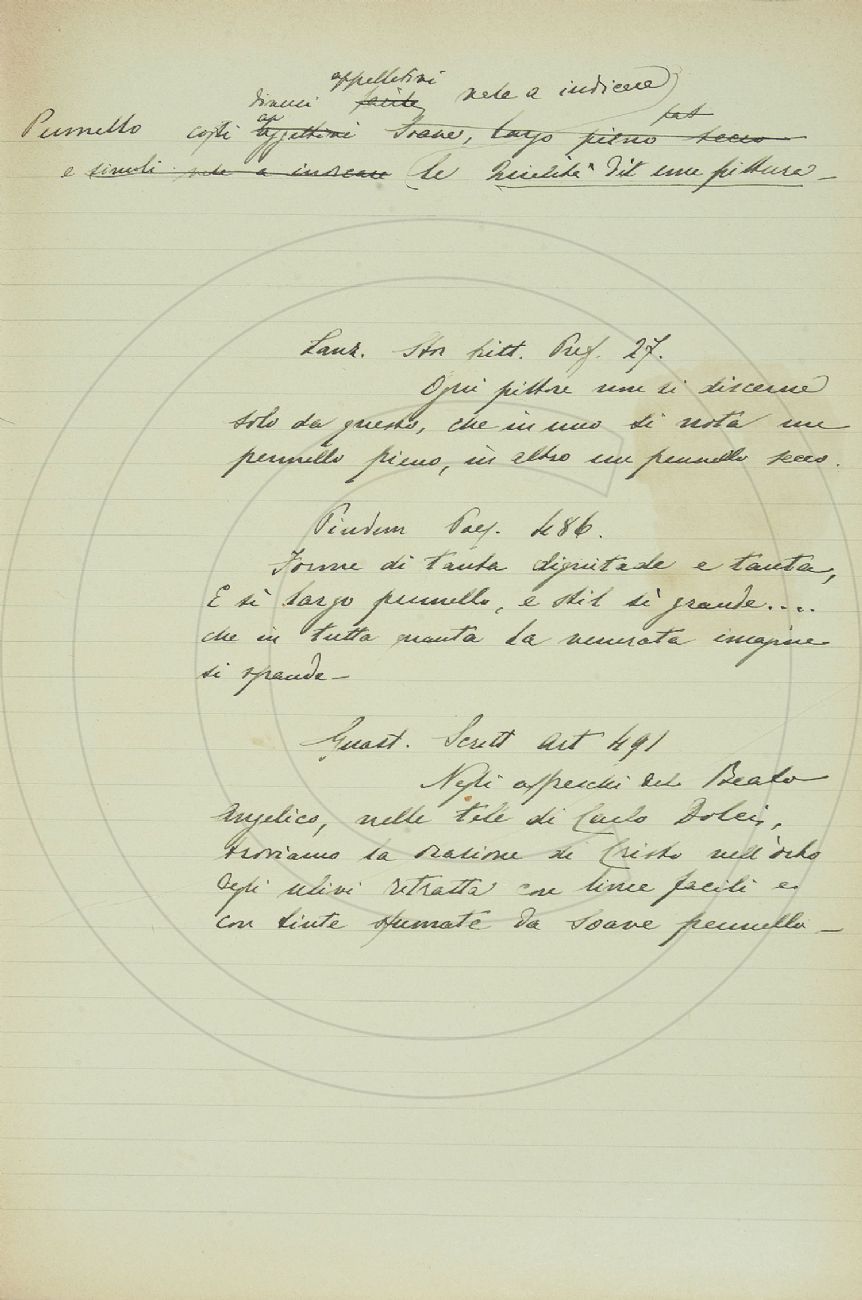 appellativi
diversi facile vale a indicare
Pennello cogli aggettivi soave, largo pieno secco
e simili vale a indicare le qualità del une pittura –
Lanz. Stor pitt. Pref. 27.
Ogni pittore non si discerne
solo da questo, che in uno si nota un
pennello pieno, in altro un pennello secco.
Pindem Poes. 486.
Forme di tanta dignitade e tanta,
E sì largo pennello, e stil sì grande....
che in tutta quanta la venerata imagine
si spande –
Guast. Scritt Art 491
Negli affreschi del Beato
Angelico, nelle tele di Carlo Dolci,
troviamo la orazione di Cristo nell'orto
degli ulivi ritratta con linee facili e
con tinte sfumate da soave pennello –